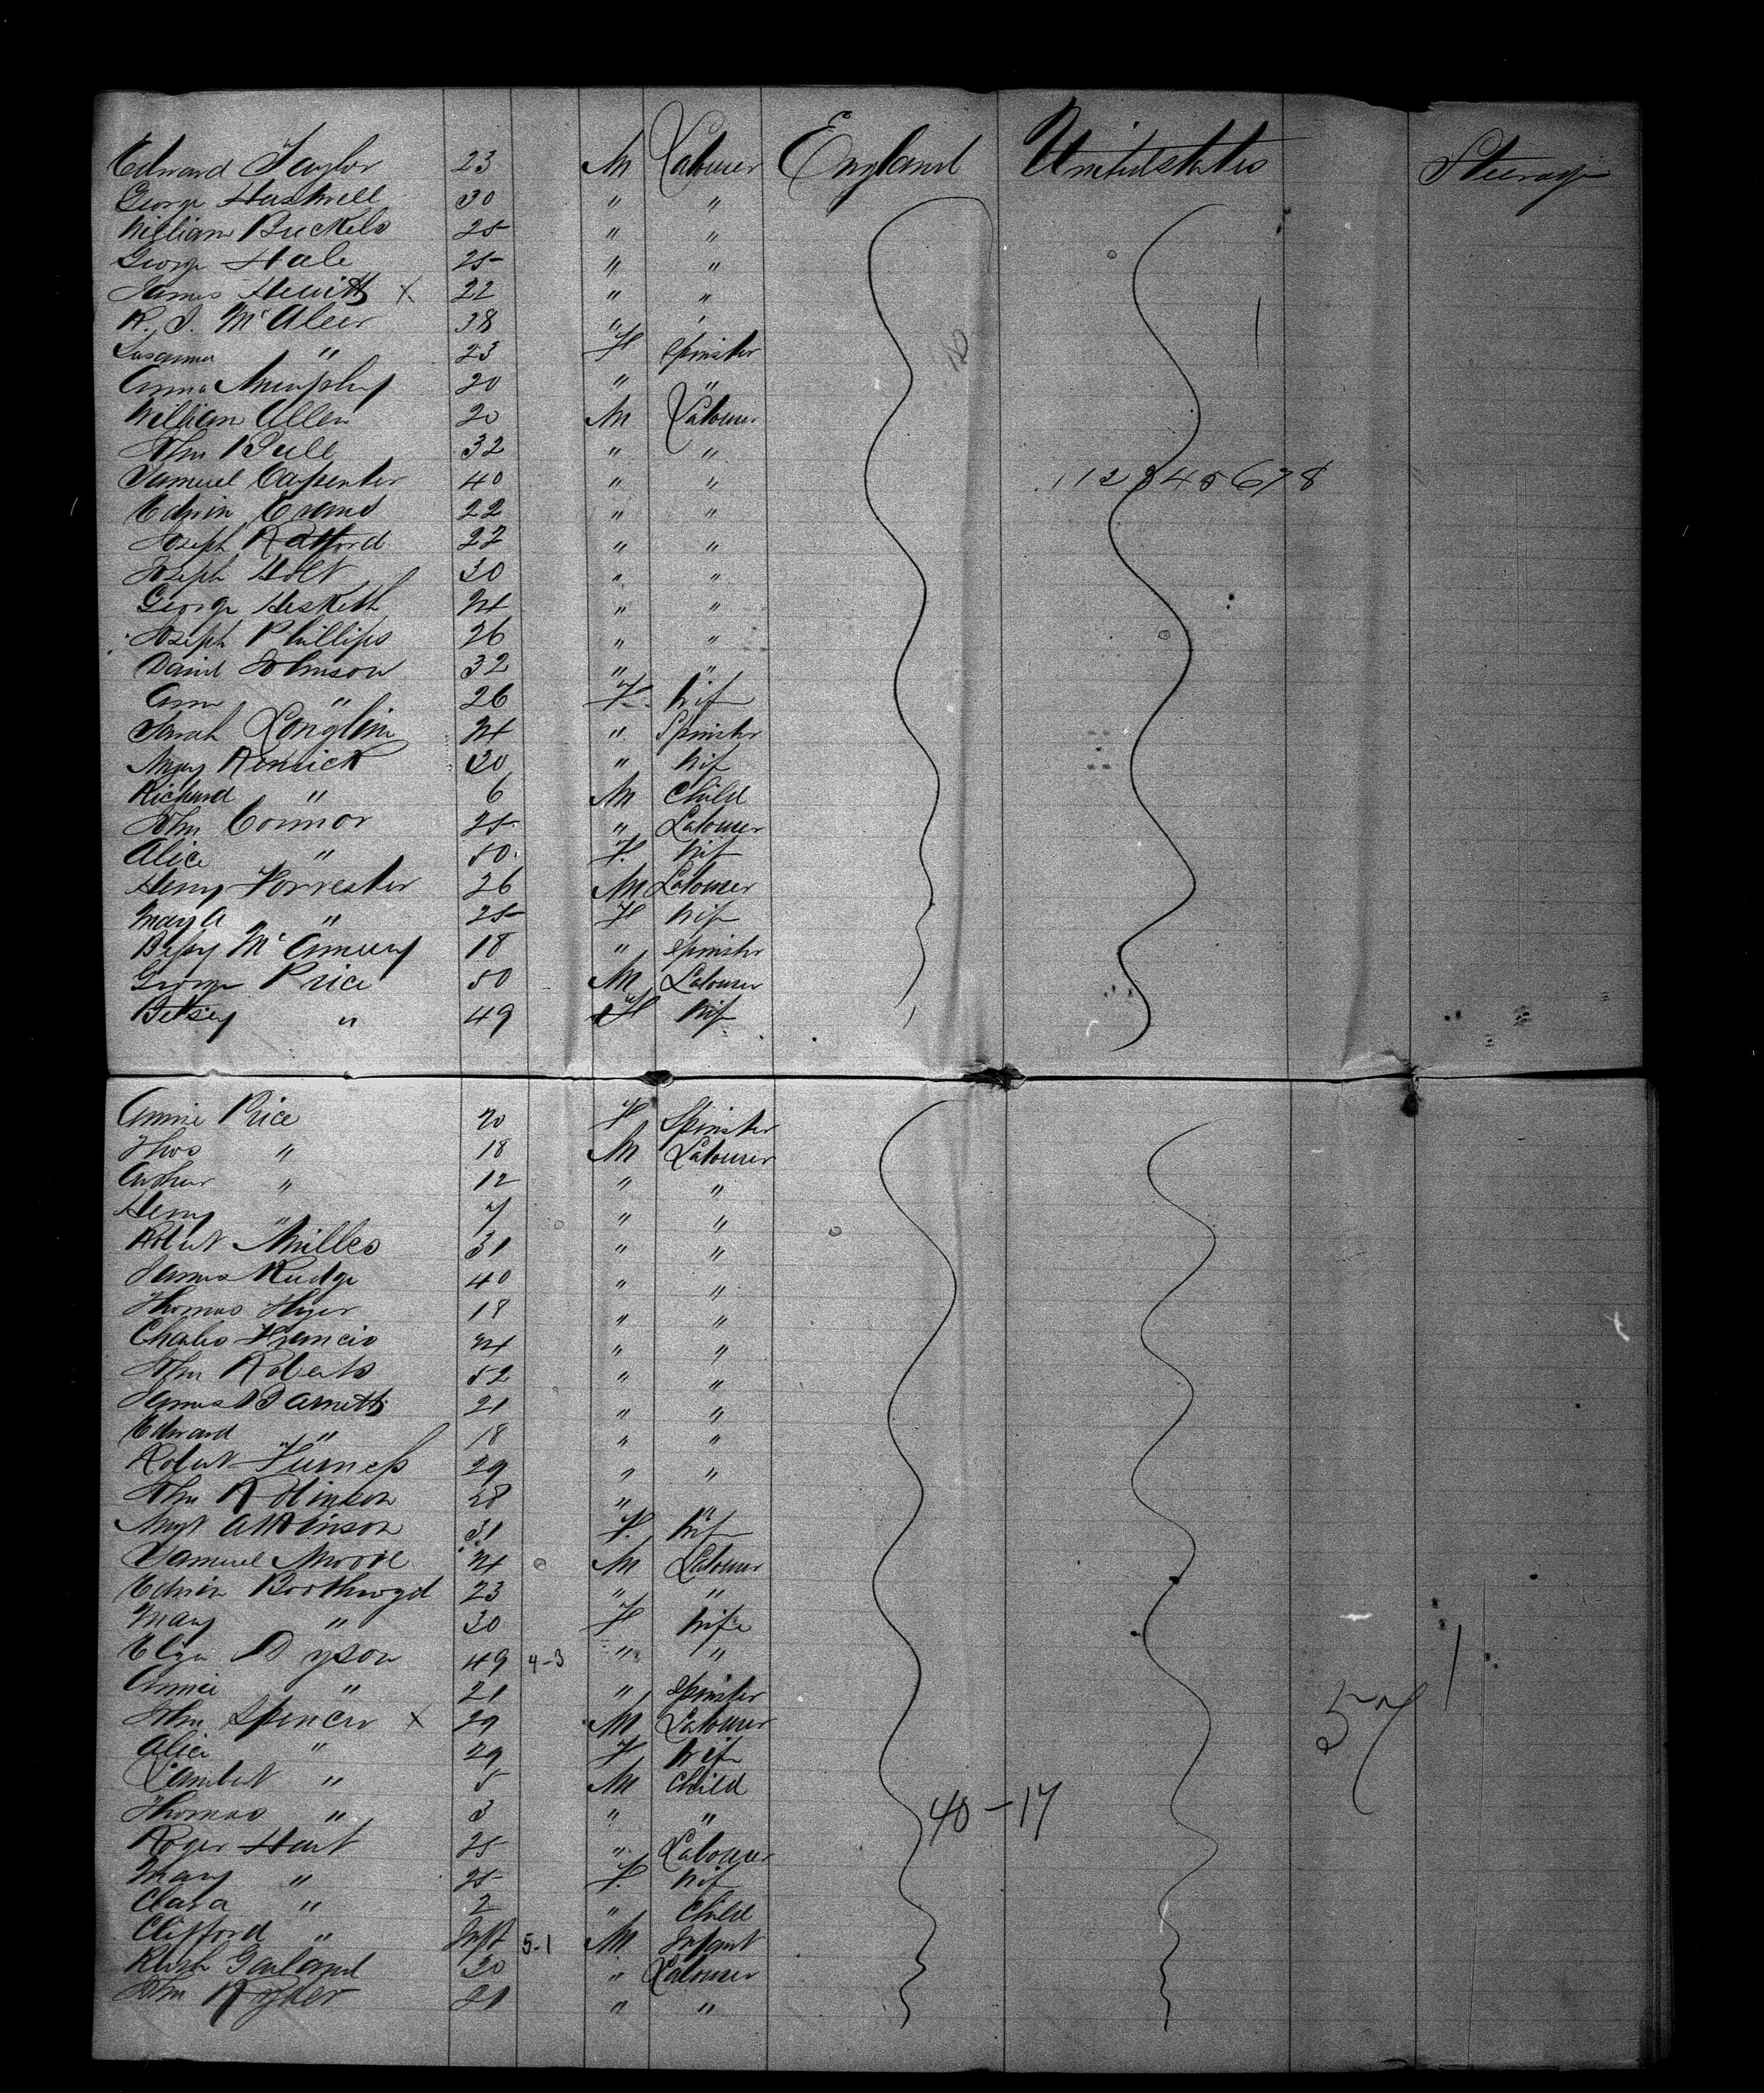 Edward Taylor 23 M Labourer England United States Steerage
George Hashwell 30 " "
William Buckels 25 " "
George Hale 25 " "
James Hewitt X 22 " "
R. J. McAleer 38 " "
Susanna " 23 F Spinster
Anna Murphy 20 " "
William Allen 20 M Labourer
John Bull 32 " "
Samuel Carpenter 40 " " 1 2 3 4 5 6 7 8
Edwin Evans 22 " "
Joseph Ratford 22 " "
Joseph Holt 30 " "
George Hesketh 24 " "
Joseph Phillips 26 " "
David Johnson 32 " "
Ann " 26 F Wife
Sarah 24 " Spinster
Mary Renwick 30 " Wife
Richard " 6 M Child
John Connor 25 " Labourer
Alice " 50 F. Wife
Henry Forrester 26 M Labourer
Mary A " 25 F Wife
Bessy 18 " Spinster
George Price 50 M Labourer
Betsey " 49 F Wife
Annie Price 20 F Spinster
Thos " 18 M Labourer
Arthur " 12 " "
Henry " 7 " "
Robert Milles 31 " "
James Rudge 40 " "
Thomas 18 " "
Charles Francis 24 " "
John Roberts 52 " "
James Barnett 21 " "
Edward " 18 " "
Robert Furness 29 " "
John Robinson 28 " "
Margt Atkinson 31 F. Wife
Samuel Moore 24 M Labourer
Edwin Boothroyd 23 " "
Mary " 30 F Wife
Eliza Dyson 49 4-3 " "
Annie " 21 " Spinster
John Spencer X 29 M Labourer 57
Alice " 29 F Wife
Lambert " 5 M Child
Thomas " 3 " " 40-17
Roger Hart 25 " Labourer
Mary " 25 F. Wife
Clara " 2 " Child
Clifford " Inft 5-1 M Infant
Garland 20 " Labourer
John Ryder 21 " "